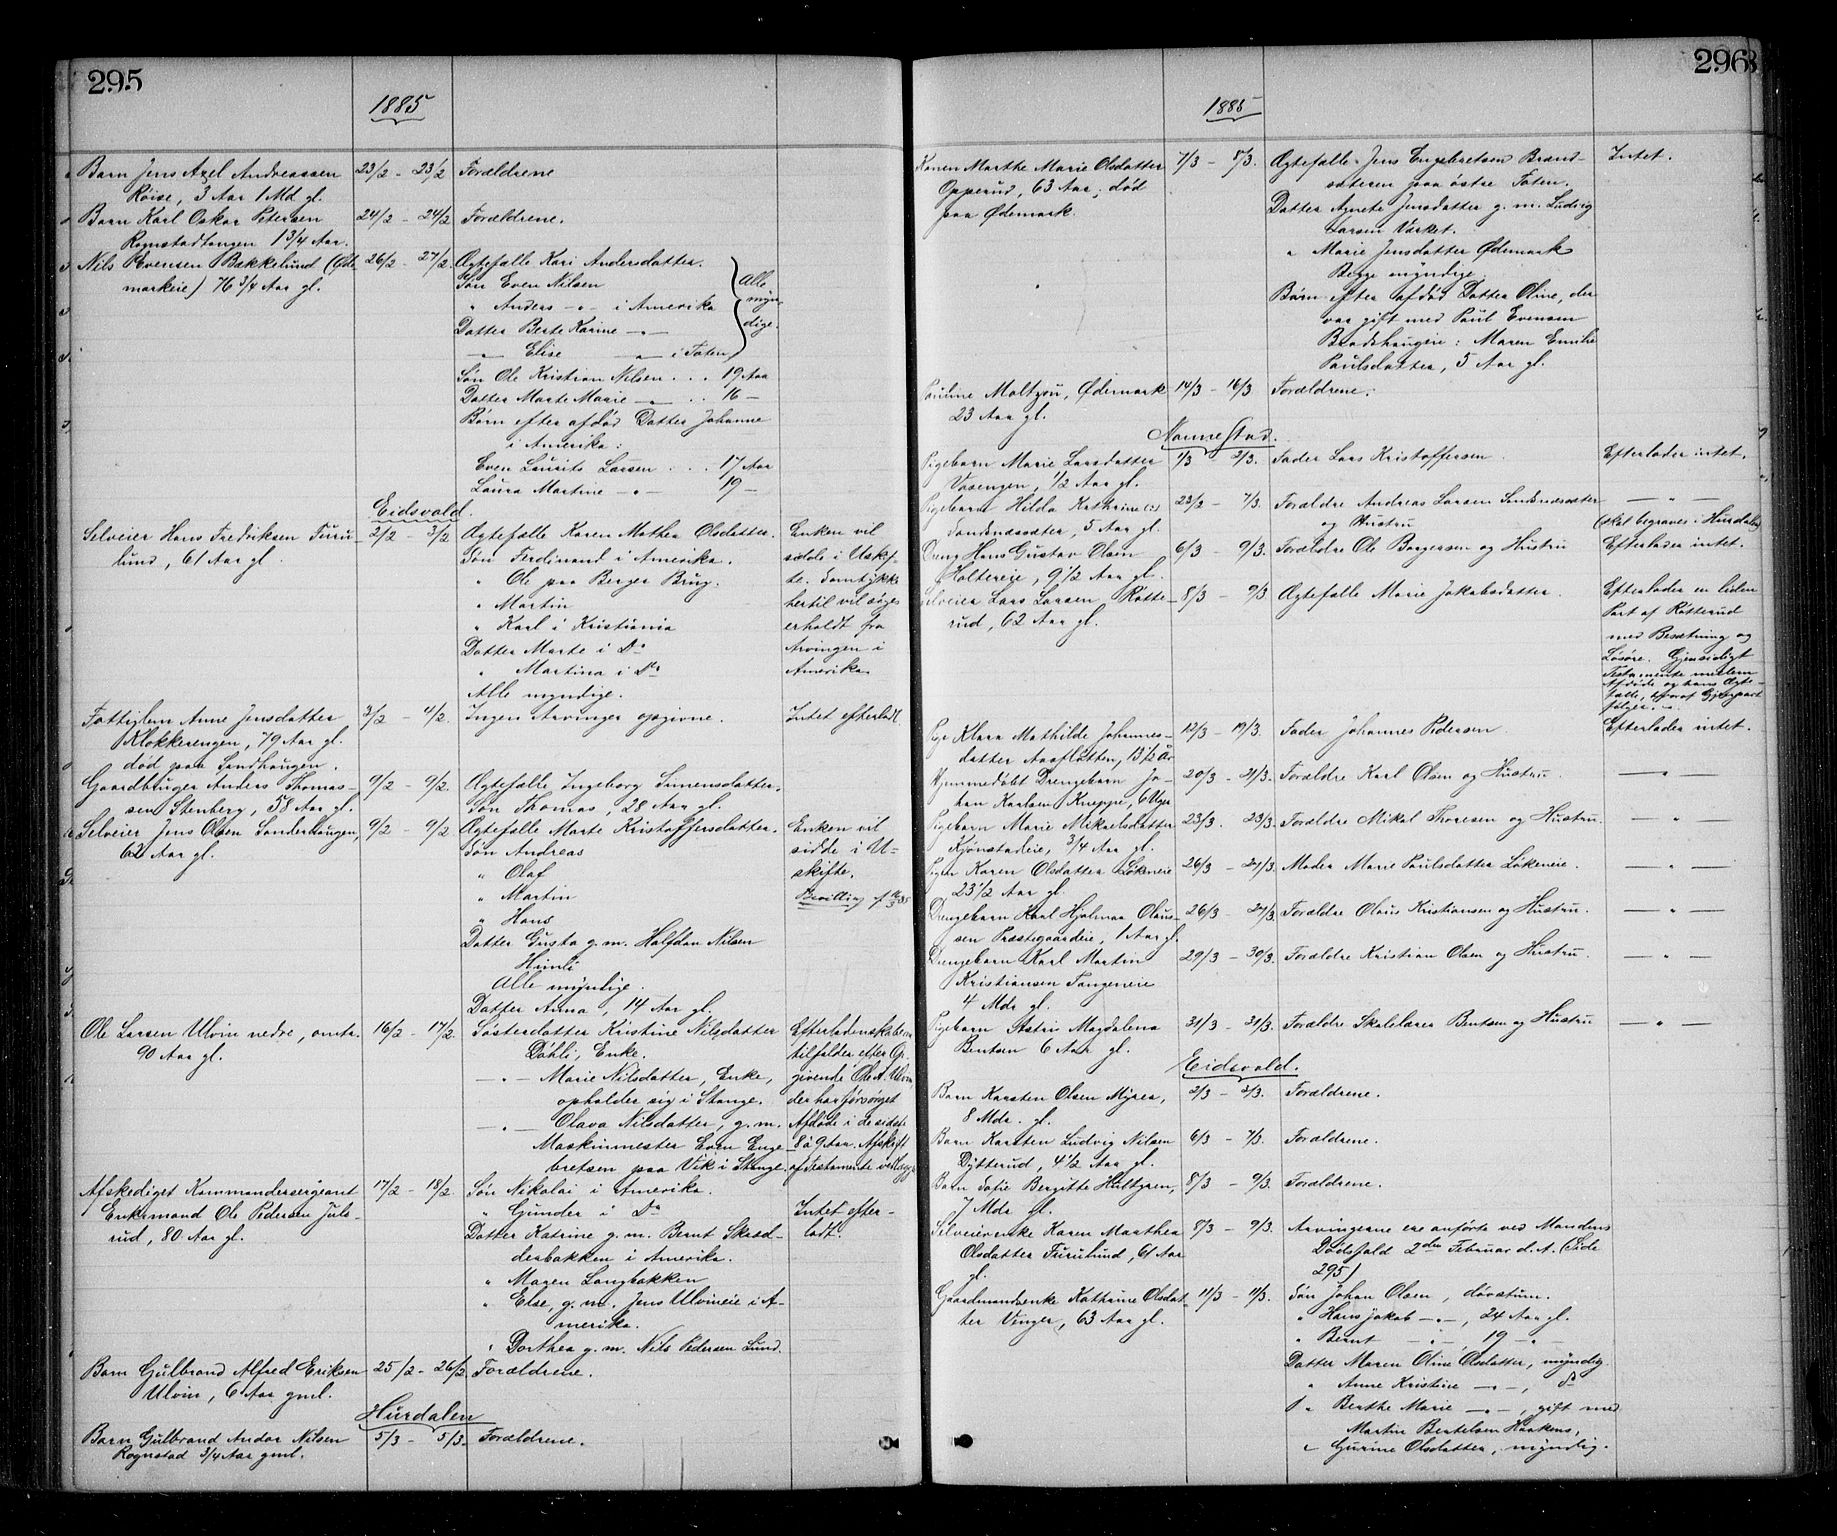 295
1885
Barn Jens Axel Andreassen 23/2 - 23/2 Forældrene
Röise, 3 Aar 1 Md gl.
Barn Karl Oskar Petersen 24/2 - 24/2 Forældrene.
Rognstadtangen 1 3/4 Aar.
Nils Evensen Bækkelund (Øde 26/2 - 27/2. Ægtefælle Kari Andersdatter.
markeie) 76 3/4 Aar gl. Søn Even Nilsen
" Anders -"- i Amerika
Datter Berte Karine -"-
-"- Elise -"- i Toten
Alle
myn
dige.
Søn Ole Kristian Nilsen . . . 19 Aar
Datter Marte Marie -"- . . 16 -
Børn efter afdød Datter Johanne
i Amerika:
Even Laurits Larsen . . . 17 Aar
Laura Martine -"- 19 -
Eidsvold.
Selveier Hans Fredriksen Furu 2/2 - 3/2 Ægtefælle Karen Mathea Olsdatter. Enken vil
lund, 61 Aar gl. Søn Ferdinand i Amerika. sidde i Uskif
" Ole paa Berger Brug. te. Samtykke
" Martin hertil vil søges
" Karl i Kristiania erholdt fra
Datter Marte i Do Arvingen i
" Martina i Do Amerika.
Alle myndige.
Fattiglem Anne Jensdatter 3/2 - 4/2. Ingen Arvinger opgivne. Intet efterladt.
Klokkerengen, 79 Aar gl.
død paa Sandhaugen.
Gaardbruger Anders Thomas- 9/2 - 9/2. Ægtefælle Ingeborg Simensdatter.
sen Stenberg, 58 Aar gl. Søn Thomas, 28 Aar gl.
Selveier Jens Olsen Sonderhaugen, 9/2 - 9/2 Ægtefælle Marte Kristoffersdatter. Enken vil
62 Aar gl. Søn Andreas sidde i U-
" Olaf skifte.
" Martin Bevilling af
" Hans
Datter Gusta g. m. Halfdan Nilsen
Himli
Alle myndige.
Datter Anna, 14 Aar gl.
Ole Larsen Ulvin nedre, omtr. 16/2 - 17/2. Søsterdatter Kristine Nilsdatter Efterladenskaberne
90 Aar gl. Döhli, Enke. tilfalder efter Op
-"- Marie Nilsdatter, Enke, givende Ole A. Ulvin,
opholder sig i Stange. der har forsørget
-"- Olava Nilsdatter, g. m. Afdøde i de sidste
Maskinmester Even Enge- 8 à 9 Aar. Afskrift
bretsen paa Vik i Stange. af Testamente vedlægges
Afskediget Kommandersergeant 17/2 - 18/2 Søn Nikolai i Amerika.
Enkemand Ole Pedersen Juls- " Gunder i Do Intet efter-
rud, 80 Aar gl. Datter Katrine g. m. Bernt Skred- ladt.
derbakken i Amerika.
" Maren Langbakken
" Else, g. m. Jens Ulvineie i A-
merika.
" Dorthea g. m. Nils Pedersen Lund.
Barn Gulbrand Alfred Eriksen 25/2 - 26/2 Forældrene.
Ulvin, 6 Aar gml.
Hurdalen
Barn Gulbrand Andor Nilsen 5/3 - 5/3. Forældrene.
Rognstad 3/4 Aar gml.
296
1885
Konen Marthe Marie Olsdatter 7/3 - 8/3. Ægtefælle Jens Engebretsen Brænd-
Opperud, 63 Aar, død sæteren paa østre Toten.
paa Ødemark. Datter Agnete Jensdatter g. m. Ludvig
Larsen Værket.
" Marie Jensdatter Ødemark
Begge myndige
Børn efter afdød Datter Oline, der
var gift med Paul Evensen
Brødshaugeie: Maren Emilie
Paulsdatter, 5 Aar gl.
Intet.
Pauline Moltzau, Ødemark 14/3 - 16/3 Forældrene.
23 Aar gl.
Nannestad.
Pigebarn Marie Larsdatter 1/3 2/3. Fader Lars Kristoffersen. Efterlader intet.
Vasengen, 1/2 Aar gl.
Pigebarn Hilda Kathrine 22/2 - 7/3. Forældre Andreas Larsen Sandnessæter - " -
Sandnessæter, 5 Aar gl. og Hustru (skal begraves i Hurdalen)
Dreng Hans Gustav Olsen 6/3 - 9/3. Forældre Ole Borgersen og Hustru Efterlader intet.
Holtereie, 9 1/2 Aar gl.
Selveier Lars Larsen Rotte- 8/3 - 9/3. Ægtefælle Marie Jakobsdatter. Efterlader en liden
rud, 62 Aar gl. Part af Rotterud
med Besætning og
Løsøre. Gjensidigt
Testamente mellem
Afdøde og hans Ægte-
fælle, hvoraf Gjenpart
følger.
Pige Klara Mathilde Johannes- 12/3 - 19/3. Fader Johannes Pedersen Efterlader intet.
datter Aasfløtten, 13 1/2 År
Hjemmedøbt Drengebarn Jo- 20/3 - 21/3. Forældre Karl Olsen og Hustru. - " -
han Karlsen Kneppe, 6 Uger
Pigebarn Marie Mikaelsdatter 23/3. 23/3. Forældre Mikal Thoresen og Hustru. - " -
Kjønstadeie, 3/4 Aar gl.
Pigen Karen Olsdatter Løkeneie 26/3 - 27/3. Moder Marie Paulsdatter Løkeneie. - " -
23 1/2 Aar gl.
Drengebarn Karl Hjalmar Olaus- 26/3 - 27/3. Forældre Olaus Kristiansen og Hustru. - " -
sen Præstegaardeie, 1 Aar gl.
Drengebarn Karl Martin 29/3 - 30/3. Forældre Kristian Olsen og Hustru. - " -
Kristiansen Tangeneie
4 Mdr gl.
Pigebarn Astrid Magdalena 31/3 - 31/3. Forældre Skolelærer Bentsen og Hustru - " -
Bentsen 6 Aar gl.
Eidsvold.
Barn Karsten Olsen Myrer, 2/3 - 2/3. Forældrene.
8 Mdr. gl.
Barn Karsten Ludvig Nilsen 6/3 - 7/3. Forældrene.
Dytterud, 4 1/2 Aar gl.
Barn Sofie Bergitte Hultgren, 8/3 - 9/3. Forældrene.
7 Mdr gl.
Selveierenke Karen Marthea 8/3 - 9/3. Arvingerne ere anførte ved Mandens
Olsdatter Furulund, 61 Aar Dødsfald 2den Februar d. A. (Side
gl. 295)
Gaardmandsenke Kathrine Olsdat- 11/3 - 11/3. Søn Johan Olsen, døvstum.
ter Vinger, 63 Aar gl. " Hans Jakob -"-, 24 Aar gl.
" Bernt -"- 19 -"-
Datter Maren Oline Olsdatter, myndig.
" Anne Kristine -"-, do
" Berthe Marie -"-, gift med
Martin Bertelsen Haakens,
" Gurine Olsdatter, myndig.